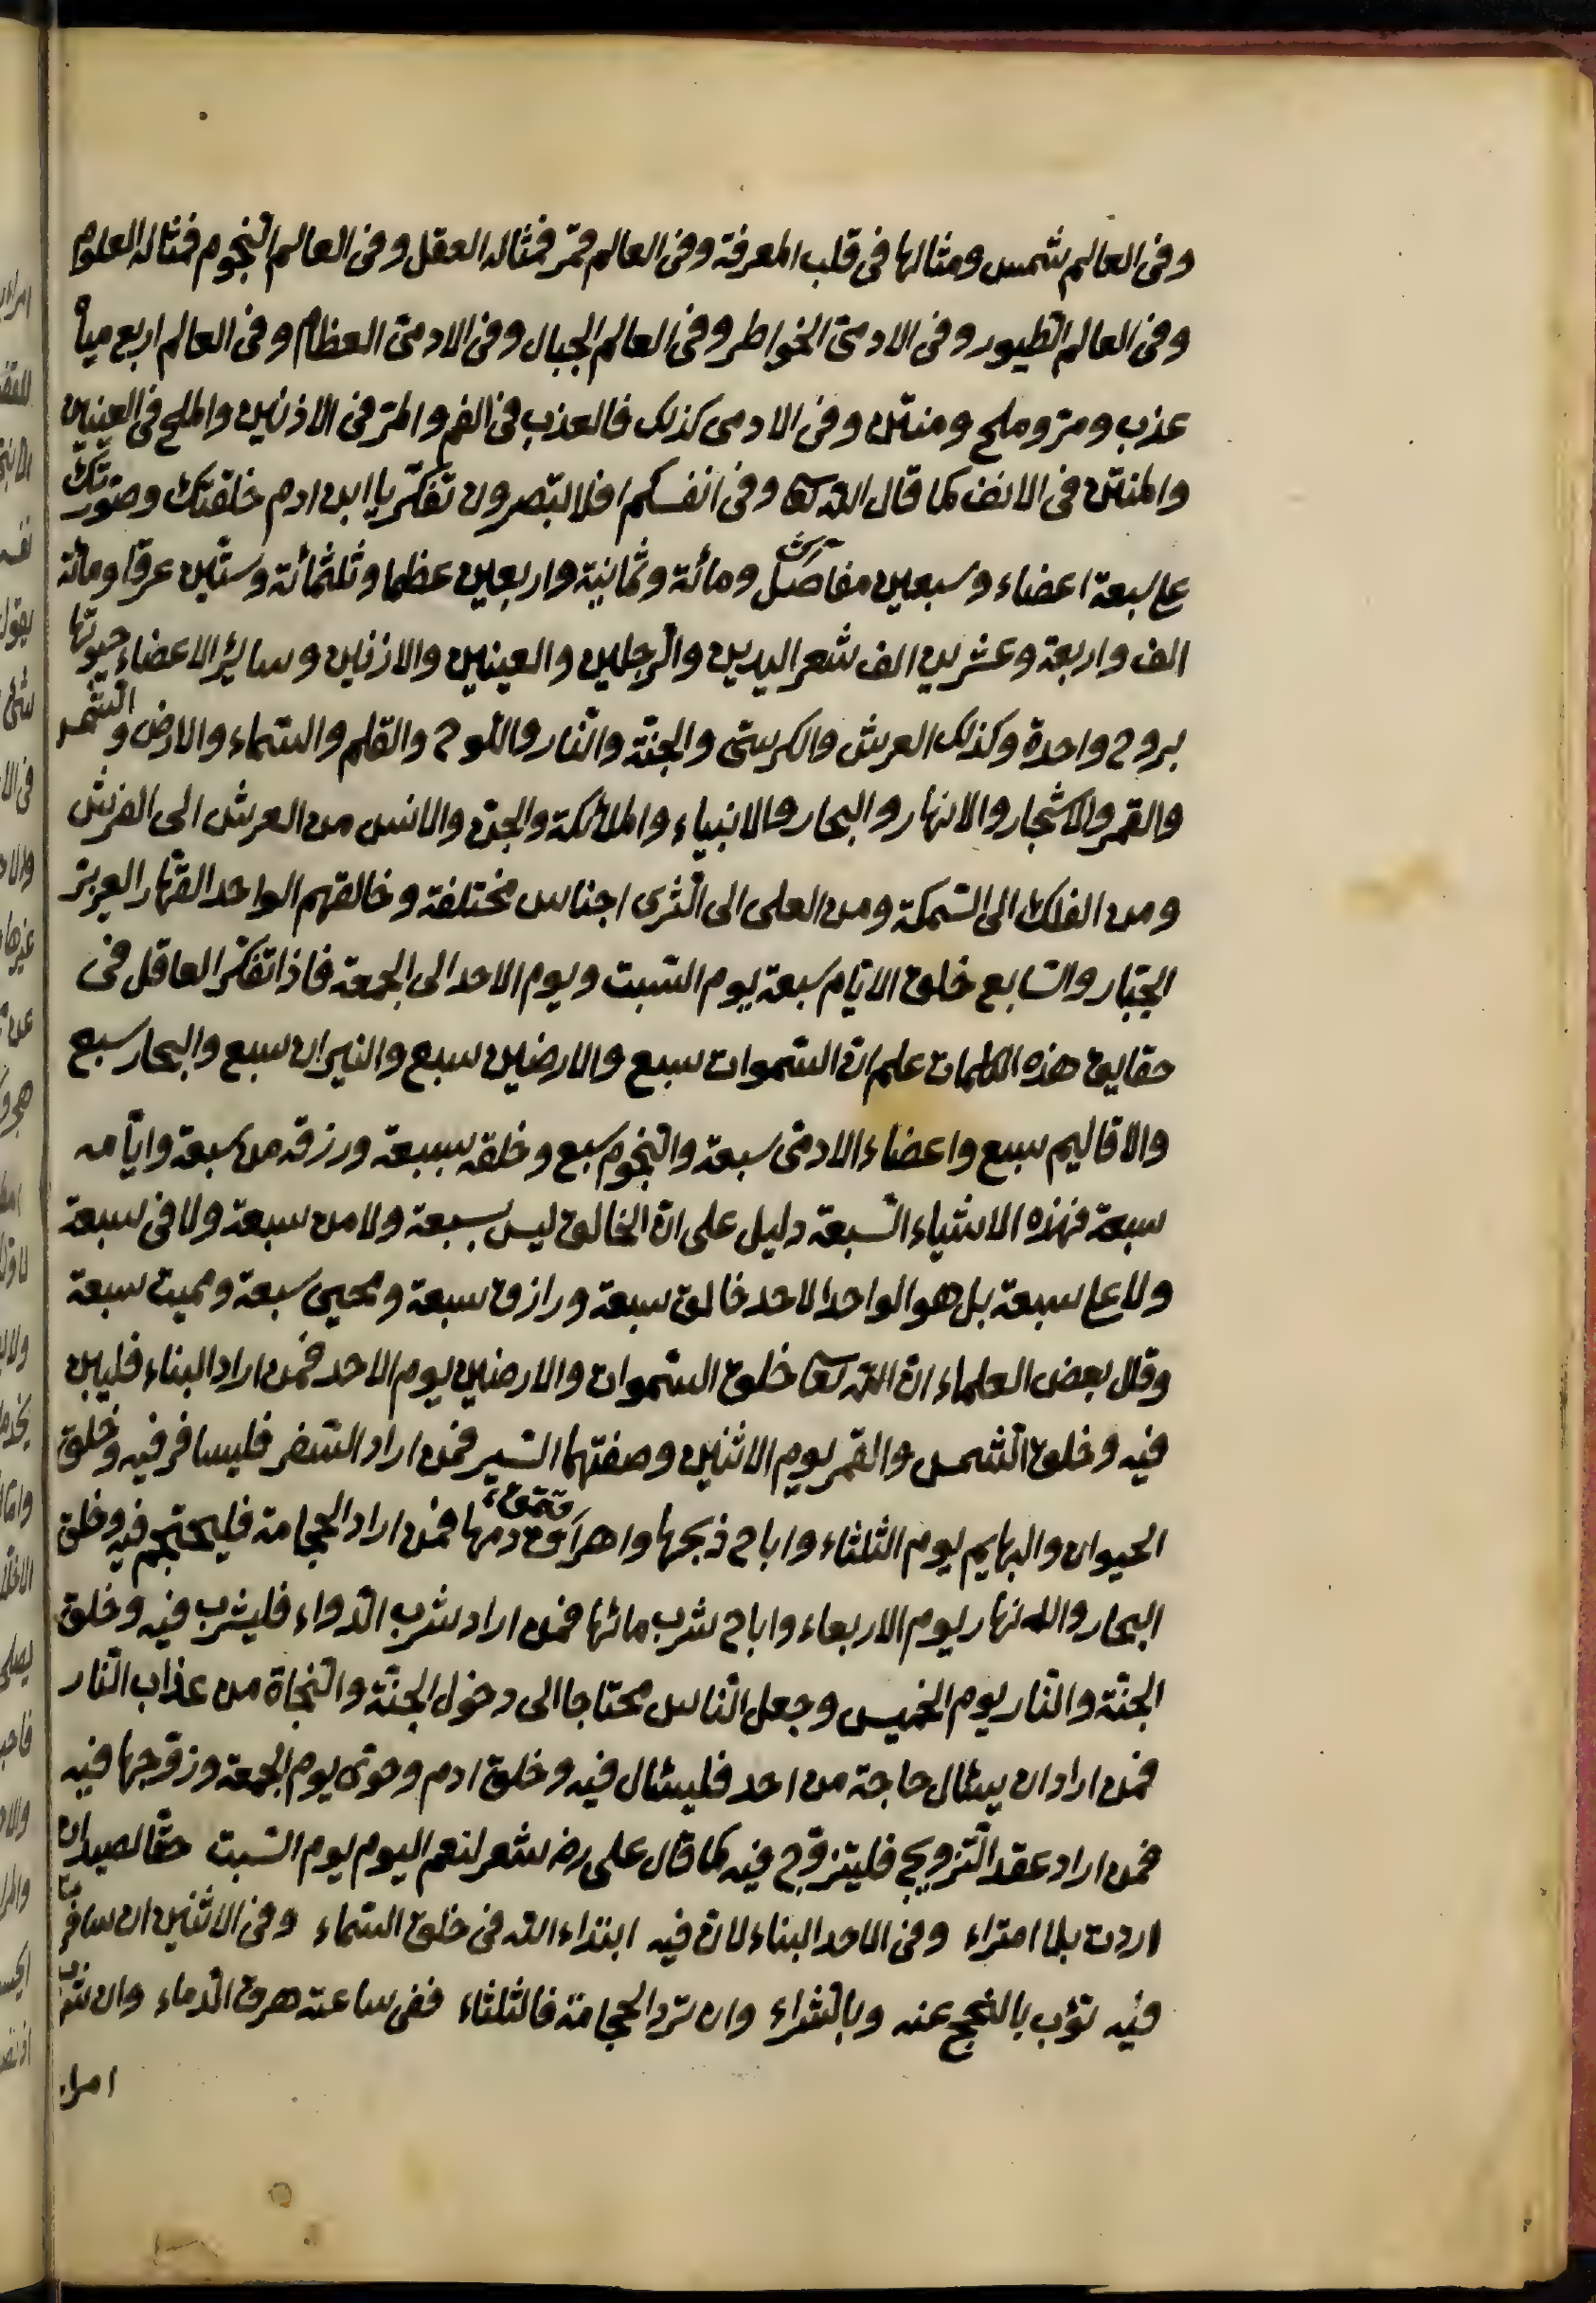 وفى العالم شمس ومثالها فى قلب المعرفة وفى العالم قمر فمثاله العقل وفى العالم النجوم فمثاله العلوم
وفى العالم الطيور وفى الادمى الخواطر وفى العالم الجبال وفى الادمى العظام وفى العالم اربع مياه
عذب ومر وملح ومنتن وفى الادمى كذلك فالعذب فى الفم والمر فى الاذنين والملح فى العينين
والمنتن فى الانف كما قال الله تعا وفى انفسكم افلا تبصرون تفكر يا ابن ادم خلقتك وصورتك
على سبعة اعضاء وسبعين مفاصل ومائة وثمانية واربعين عظما وثلثمائة وستين عرقا ومائة
الف واربعة وعشرين الف شعر اليدين والرجلين والعينين والاذنين وسائر الاعضاء حيوتها
بروح واحدة وكذلك العرش والكرسى والجنة والنار واللوح والقلم والسماء والارض والشمس
والقمر والاشجار والانهار والبحار والانبياء والملائكة والجن والانس من العرش الى الفرش
ومن الفلك الى السمكة ومن العلى الى الثرى اجناس مختلفة وخالقهم الواحد القهار العزيز
الجبار والسابع خلق الايام سبعة يوم السبت ويوم الاحد الى الجمعة فاذا تفكر العاقل فى
حقايق هذه الكلمات علم ان السموات سبع والارضين سبع والنيران سبع والبحار سبع
والاقاليم سبع واعضاء الادمى سبعة والنجوم سبع وخلقه بسبعة ورزقه من سبعة وايامه
سبعة فهذه الاشياء السبعة دليل على ان الخالق ليس بسبعة ولا من سبعة ولا فى سبعة
ولا على سبعة بل هو الواحد الاحد خالق سبعة ورازق سبعة ومحيى سبعة ومميت سبعة
وقال بعض العلماء ان الله تعا خلق السموات والارضين يوم الاحد فمن اراد البناء فليبن
فيه وخلق الشمس والقمر يوم الاثنين وصفتهما السير فمن اراد السفر فليسافر فيه وخلق
الحيوان والبهايم يوم الثلثاء واباح ذبحها واهراق دمها فمن اراد الحجامة فليحتجم فيه وخلق
البحار والانهار يوم الاربعاء واباح شرب مائها فمن اراد شرب الدواء فليشرب فيه وخلق
الجنة والنار يوم الخميس وجعل الناس محتاجا الى دخول الجنة والنجاة من عذاب النار
فمن اراد ان يسئال حاجة من احد فليسئال فيه وخلق ادم وحوى يوم الجمعة وزوجها فيه
فمن اراد عقد التزويج فليتزوج فيه كما قال على رضه شعر لنعم اليوم يوم السبت حقا لصيد ان
اردت بلا امتراء وفى الاحد البناء لان فيه ابتداء الله فى خلق السماء وفى الاثنين ان سافرت
فيه تؤب بالنجح عنه وبالثراء وان ترد الحجامة فالثلثاء ففى ساعته هرق الدماء وان شرب
امراء